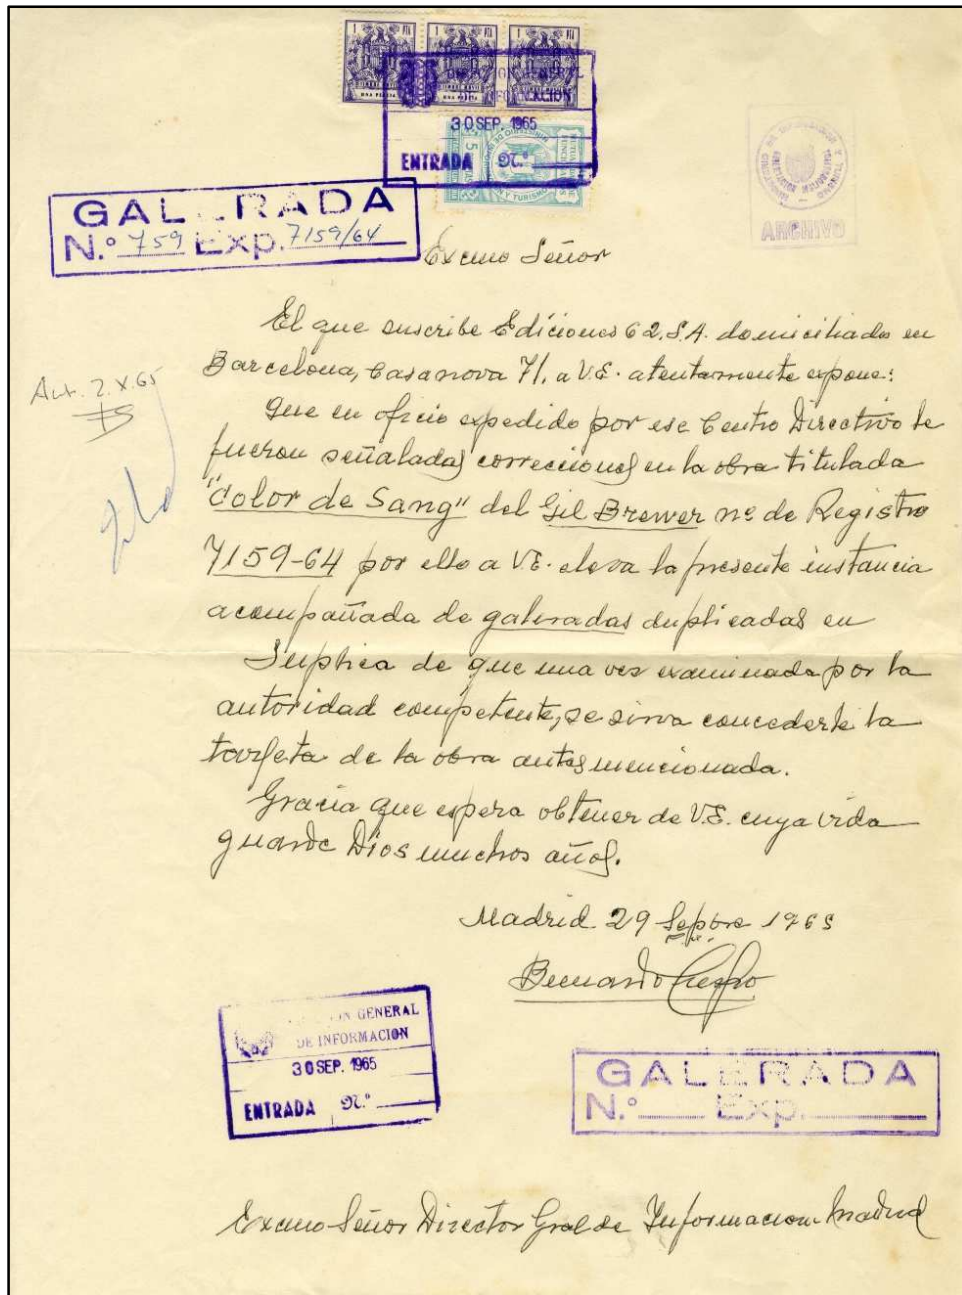 1 PTA 1 PTA 1 PTA
UNA PESETA
DIRECCION GENERAL
DE INFORMACION
30 SEP. 1965
ENTRADA N.º
MINISTERIO DE INFORMACION Y TURISMO
5
ARCHIVO
GALERADA
N.º 759 Exp. 7159/64
Excmo Señor
El que suscribe Ediciones 62, S.A. domiciliado en
Barcelona, Casanova 71, a V.E. atentamente expone:
Aut. 2.X.65
Que en oficio expedido por ese Centro Directivo le
fueron señaladas correcciones en la obra titulada
"Color de Sang" del Gil Brewer nº de Registro
7159-64 por ello a V.E. eleva la presente instancia
acompañada de galeradas duplicadas en
Suplica de que una vez examinada por la
autoridad competente, se sirva concederle la
tarjeta de la obra antes mencionada.
Gracia que espera obtener de V.E. cuya vida
guarde Dios muchos años.
Madrid 29 Sepbre 1965
Bernardo Crespo
GENERAL
DE INFORMACION
30 SEP. 1965
ENTRADA N.º
GALERADA
N.º Exp.
Excmo Señor Director Gral de Informacion Madrid